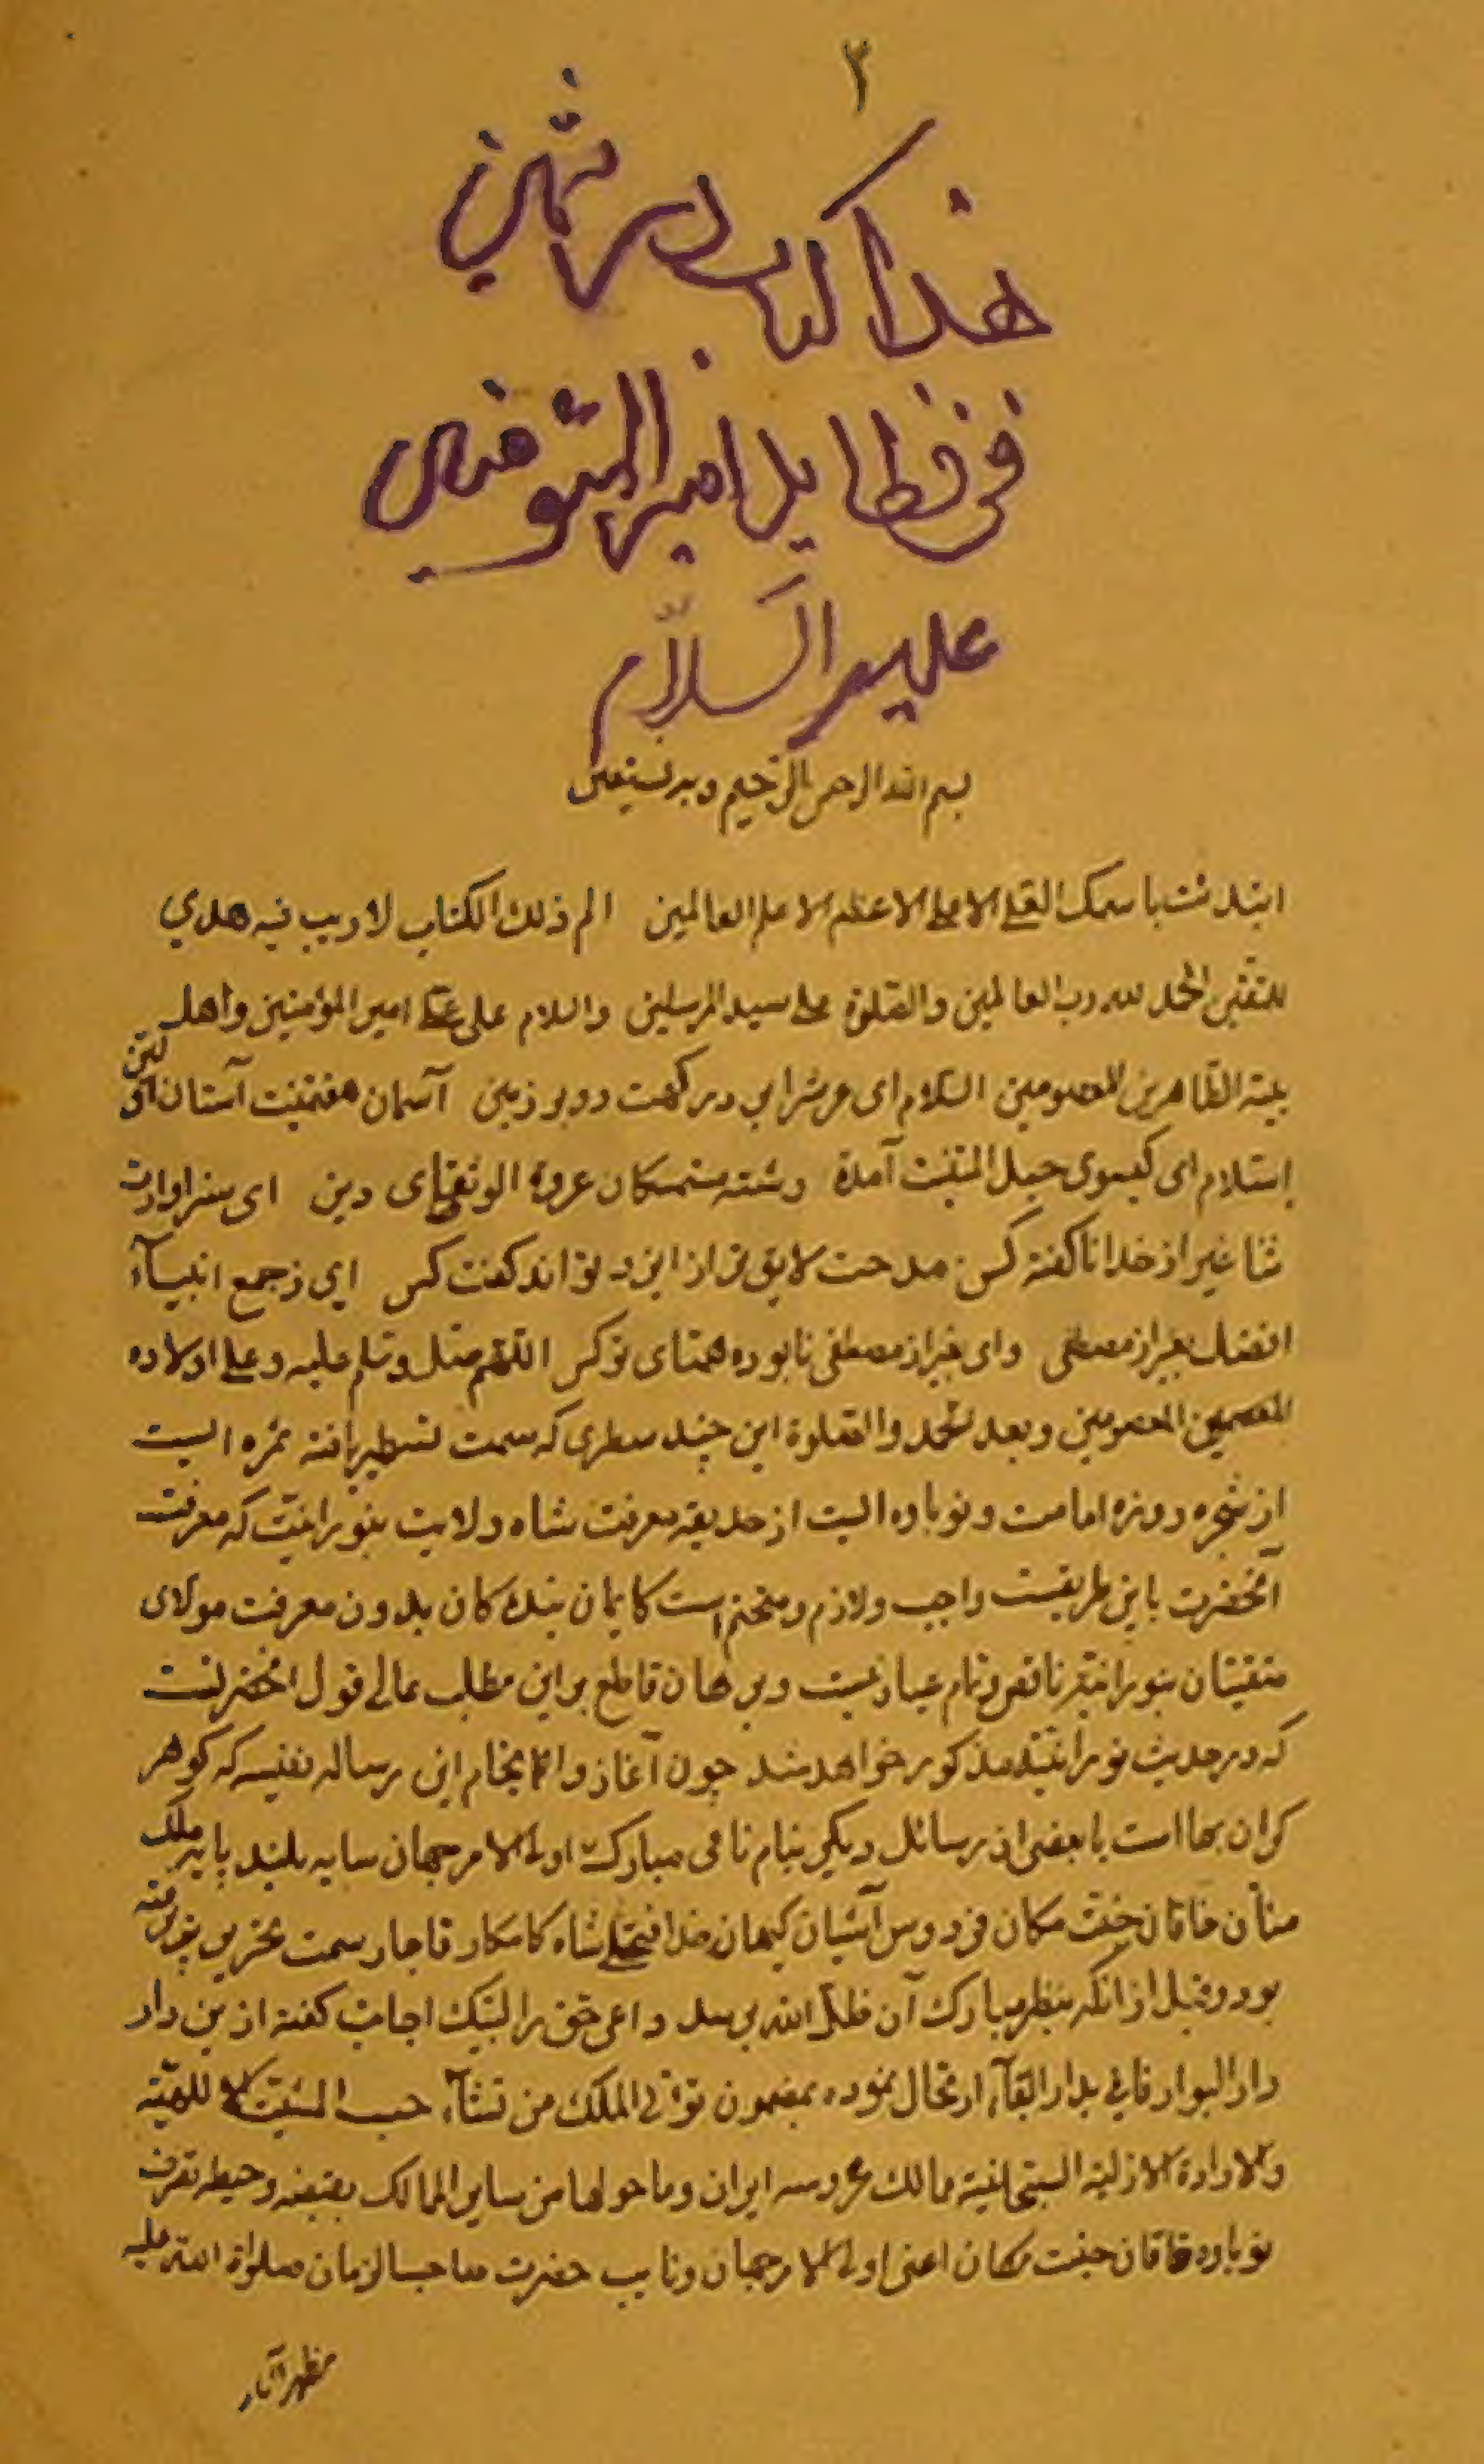 ۲
هذا کتاب در ثمین
فی فظایل امیر المؤمنین
علیه السلام
بسم الله الرحمن الرحیم وبه نستعین
ابتدئت باسمک العلی الاعلی الاعظم الاعلم العالمین الم ذلک الکتاب لا ریب فیه هدی
للمتقین الحمد لله رب العالمین والصلوة علی سید المرسلین والسلام علی علی امیر المؤمنین واهل
بیته الطاهرین المعصومین السلام ای عرش رابی درکهت دو بر زمین آسمان هفتمینت آستان اولین
السلام ای کیسوی حبل المتینت آمدة رشته متمسکان عروة الوثقای دین ای سزاوارت
ثنا غیر از خدا ناکفته کس مدحت لایق تر از ایزد نتواند کفت کس ای ز جمع انبیآء
افضلت غیر از مصطفی وای بغیر از مصطفی نابوده همتای تو کس اللهم صل وسلم علیه وعلی اولاده
المعصومین وبعد الحمد والصلوة این چند سطری که سمت تسطیر یافته ثمره ایست
از شجره دوزه امامت ونوباوه ایست از حدیقه معرفت شاه ولایت بنورانیت که معرفت
آنحضرت باین طریقت واجب ولازم ومتحتم است کایمان بندکان بدون معرفت مولای
متقیان بنورانیة ناقص وتمام عیار نیست وبرهان قاطع براین مطلب عالی قول انحضرتست
که در حدیث نورانیة مذکور خواهد شد چون آغاز وانجام این رساله نفیسه که کوهر
کران بها است با بعضی از رسائل دیکر بنام نامی مبارک اولی الامر جهان سایه بلند پایه ملک
منأن خاقان جنت مکان فردوس آشیان کیهان خدا فتحعلی شاه کامکار قاجار سمت تحریر پذیرفته
بود وقبل از انکه بنظر مبارک آن ظل الله برسد داعی حق را لبیک اجابت کفته از ین دار
دار البوار فانی بدار البقآء ارتحال نموده بمضمون تؤتی الملک من تشآء حسب المشیت الالهیة
والارادة الازلیة السبحانیة ممالک محروسه ایران وما حولها من سایر الممالک بقبضه وحیطه تصرف
نوباوه خاقان جنت مکان اعنی اولی الامر جهان ونایب حضرت صاحب الزمان صلواة الله علیه
مظهر آثار